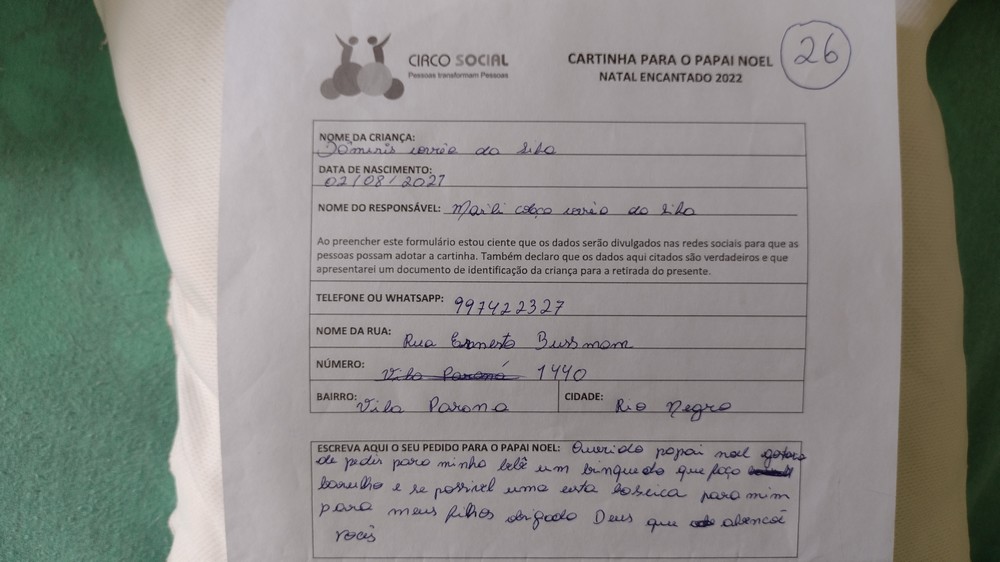 CIRCO SOCIAL
Pessoas transformam Pessoas
CARTINHA PARA O PAPAI NOEL
NATAL ENCANTADO 2022
26
NOME DA CRIANÇA:
da Silva
DATA DE NASCIMENTO:
02/08/2021
NOME DO RESPONSÁVEL: da Silva
Ao preencher este formulário estou ciente que os dados serão divulgados nas redes sociais para que as
pessoas possam adotar a cartinha. Também declaro que os dados aqui citados são verdadeiros e que
apresentarei um documento de identificação da criança para a retirada do presente.
TELEFONE OU WHATSAPP: 997422327
NOME DA RUA:
Rua Ernesto Bussmam
NÚMERO: Vila Paraná 1440
BAIRRO: Vila Parana CIDADE: Rio Negro
ESCREVA AQUI O SEU PEDIDO PARA O PAPAI NOEL: Querido papai noel
de pedir para minha bebê um brinquedo que faço
barulho e se possivel uma para mim
para meus filhos obrigado Deus que abençoi
voceis